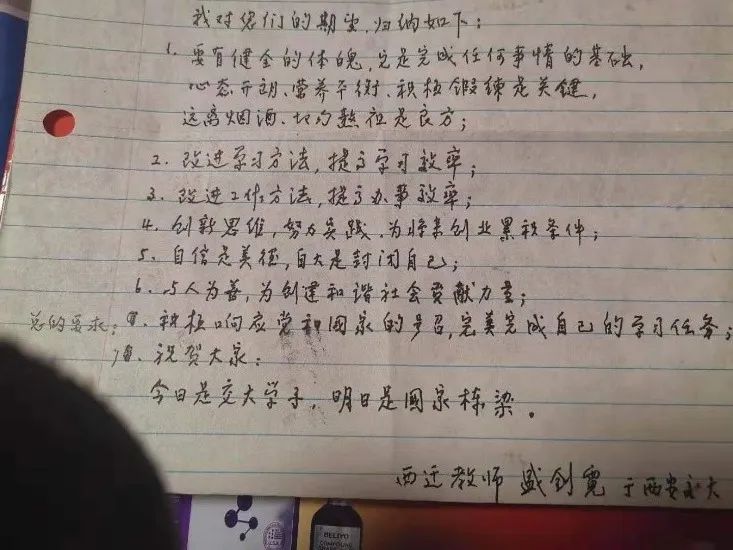 我对您们的期望,归纳如下:
1. 要有健全的体魄,它是完成任何事情的基础,
心态开朗、营养平衡、积极锻练是关键,
远离烟酒、切勿熬夜是良方;
2. 改进学习方法,提高学习效率;
3. 改进工作方法,提高办事效率;
4. 创新思维,努力实践,为将来创业累积条件;
5. 自信是美德,自大是封闭自己;
6. 与人为善,为创建和谐社会贡献力量;
总的要求: 积极响应党和國家的号召,完美完成自己的学习任务;
祝贺大家:
今日是交大学子,明日是國家栋梁。
西迁教师 盛剑霓 于西安交大
BELIYO
COMPOUND